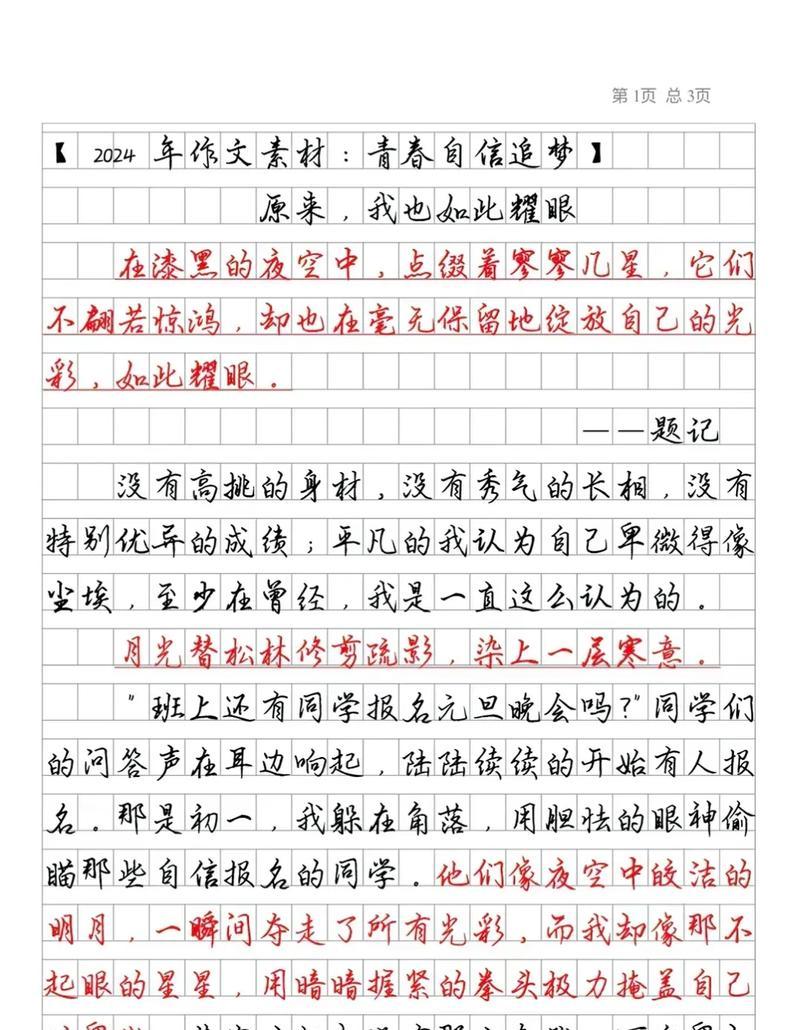 第1页 总3页
【2024年作文素材：青春自信追梦】
原来，我也如此耀眼
在漆黑的夜空中，点缀着寥寥几星，它们
不翩若惊鸿，却也在毫无保留地绽放自己的光
彩，如此耀眼。
——题记
没有高挑的身材，没有秀气的长相，没有
特别优异的成绩；平凡的我认为自己卑微得像
尘埃，至少在曾经，我是一直这么认为的。
月光替松林修剪疏影，染上一层寒意。
“班上还有同学报名元旦晚会吗？”同学们
的问答声在耳边响起，陆陆续续的开始有人报
名。那是初一，我躲在角落，用胆怯的眼神偷
瞄那些自信报名的同学。他们像夜空中皎洁的
明月，一瞬间夺走了所有光彩，而我却像那不
起眼的星星，用暗暗握紧的拳头极力掩盖自己